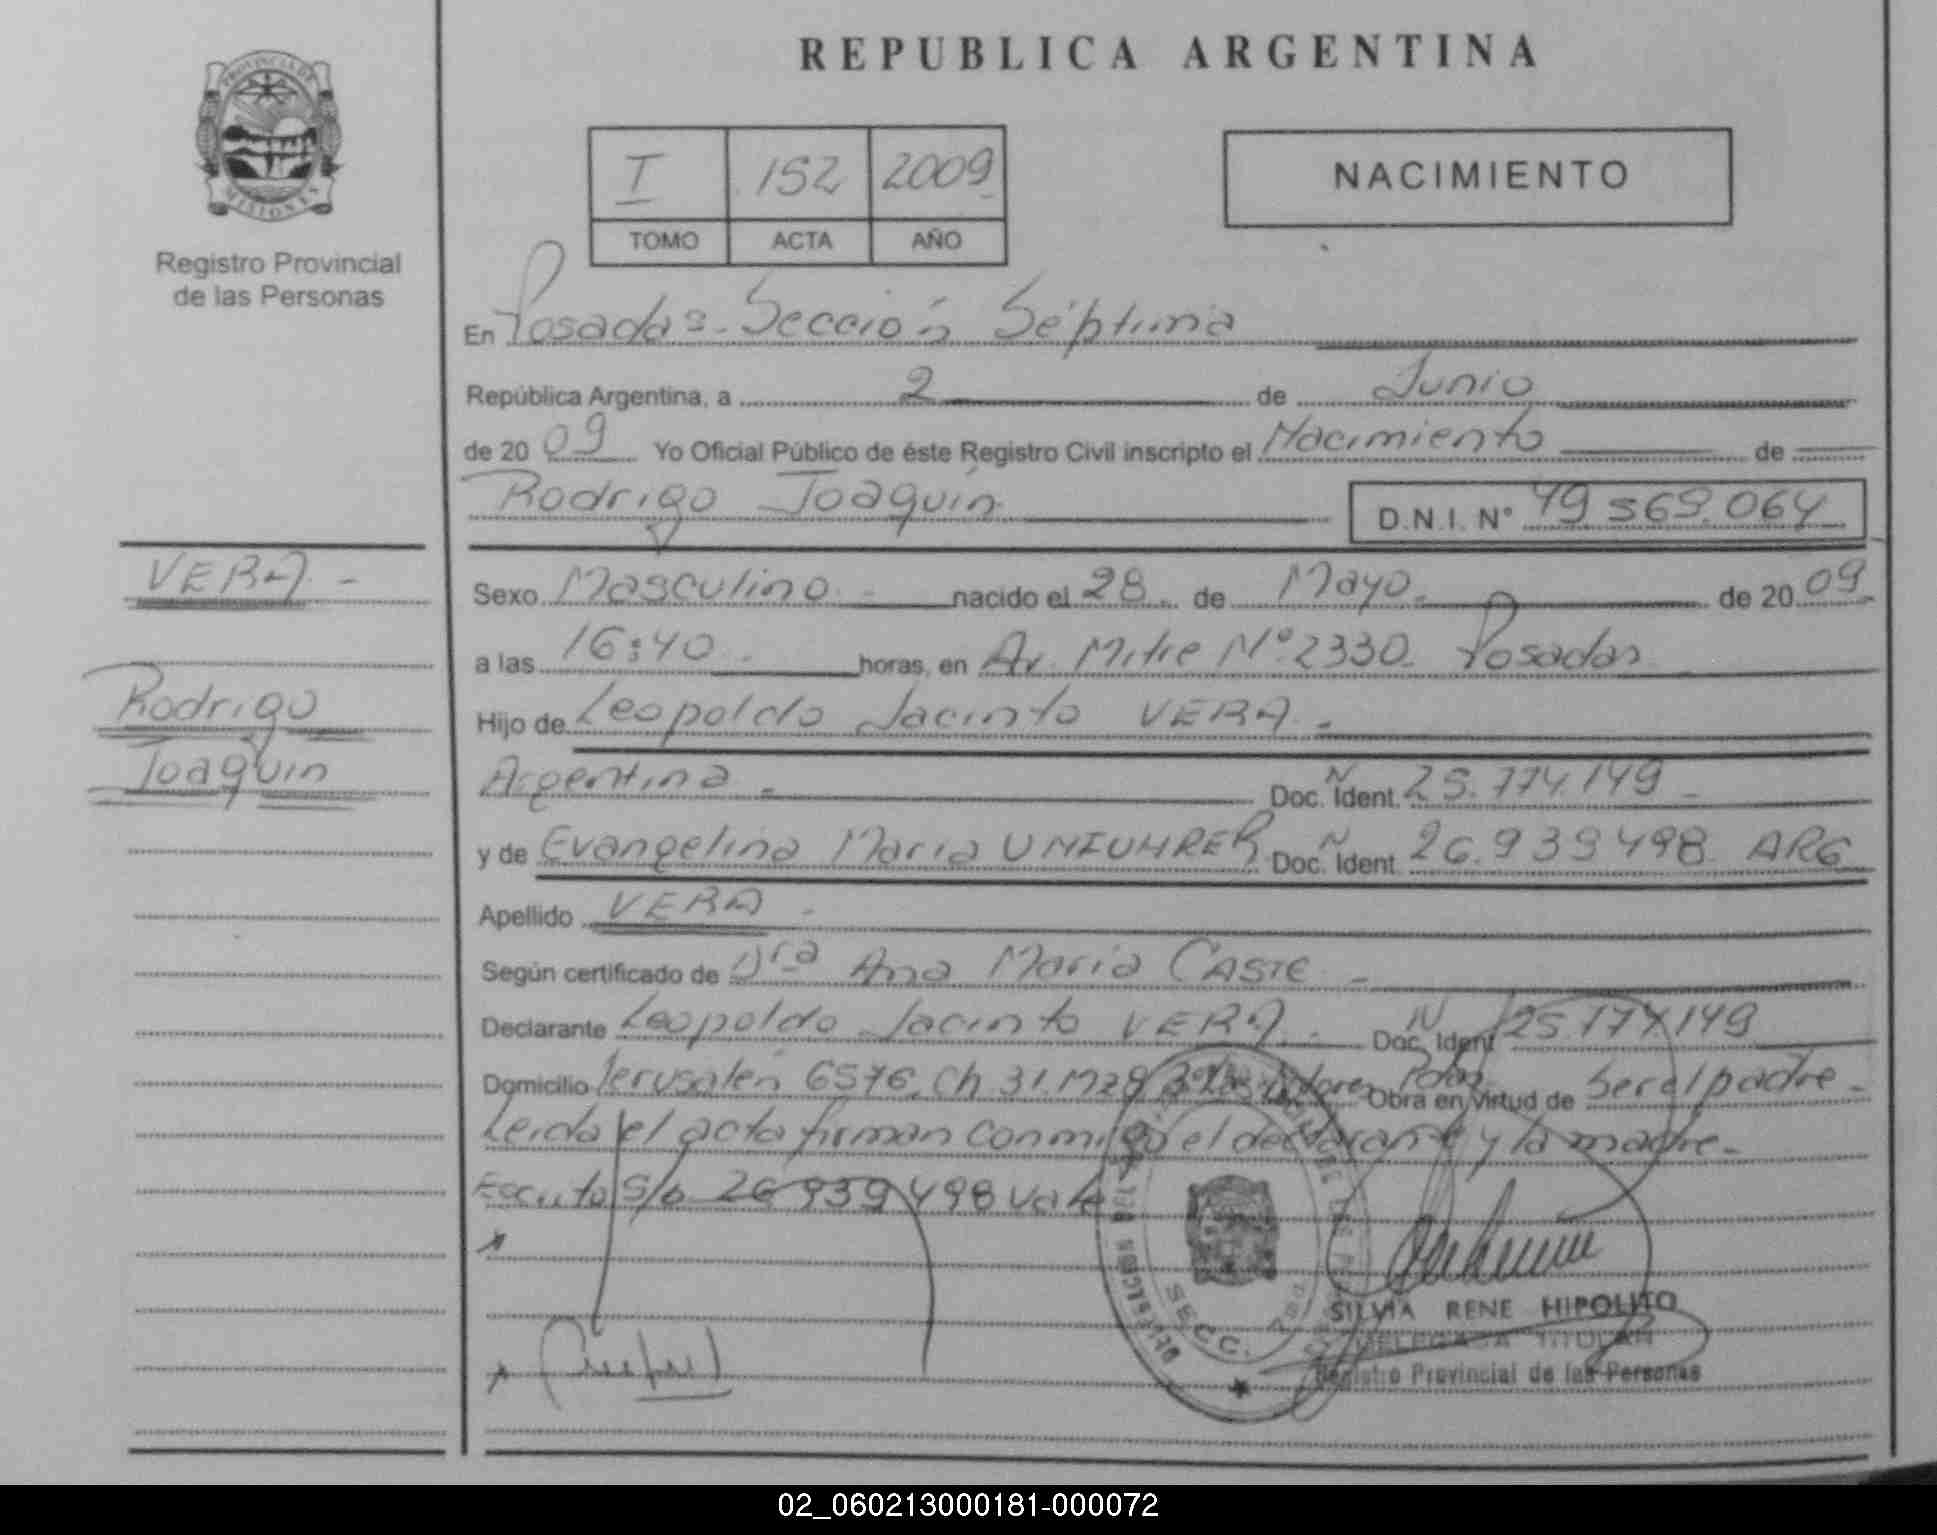 REPUBLICA ARGENTINA
PROVINCIA DE
MISIONES
Registro Provincial
de las Personas
I 152 2009
TOMO ACTA AÑO
NACIMIENTO
En Posadas. Sección Séptima
República Argentina, a 2 de Junio
de 20 09 Yo Oficial Público de éste Registro Civil inscripto el Nacimiento de
Rodrigo Joaquín D.N.I. N° 49.569.064
VERA -
Rodrigo
Joaquin
Sexo Masculino. - nacido el 28. de Mayo. de 20 09.
a las 16:40. horas, en Av. Mitre N° 2330. Posadas
Hijo de Leopoldo Jacinto VERA. -
Argentina. - Doc. Ident. N 25.774.149 -
y de Evangelina Maria Doc. Ident. N 26.939498 ARG
Apellido VERA -
Según certificado de Dra Ana Maria CASTE -
Declarante Leopoldo Jacinto VERA. - Doc. Ident N 25.774.149
Domicilio Jerusalén 6576. Ch 31. Mz Obra en Virtud de Ser el padre -
Leida el acta firman conmigo el declarante y la madre -
s/b 26 939498 vale
SECC.
SILVIA RENE HIPOLITO
DELEGADA TITULAR
Registro Provincial de las Personas
02_060213000181-000072